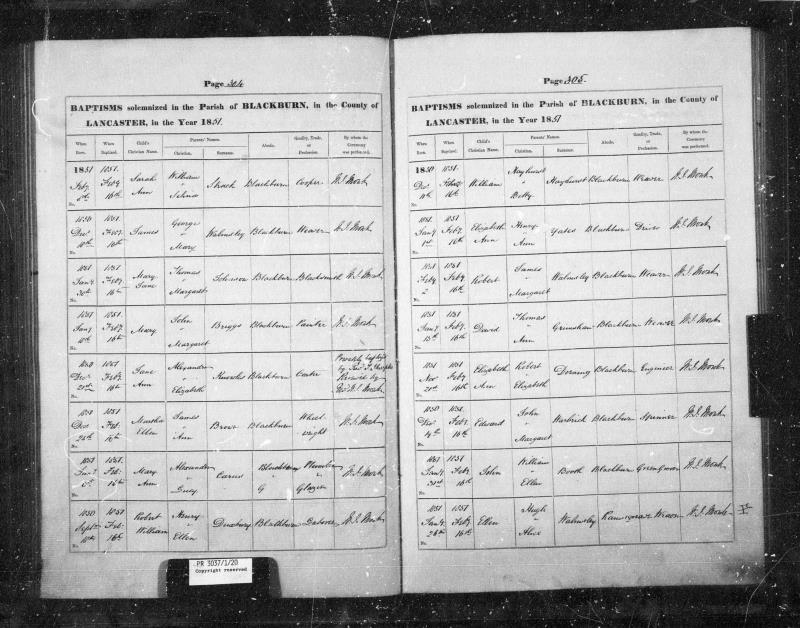 Page 304
BAPTISMS solemnized in the Parish of BLACKBURN, in the County of
LANCASTER, in the Year 1851.
When Born. When Baptized. Child's Christian Name. Parents' Names. Christian. Surname. Abode. Quality, Trade, or Profession. By whom the Ceremony was performed.
1851 Feby 1851 Feby 16th Sarah Ann William " Selina Blackburn Cooper
No.
1850 Decr 10th 1851 Feby 16th James George " Mary Walmsley Blackburn Weaver
No.
1851 Jany 30th 1851 Feby 16th Mary Jane Thomas " Margaret Johnson Blackburn Blacksmith
No.
1851 Jany 10th 1851 Feby 16th Mary John " Margaret Briggs Blackburn Painter
No.
1850 Decr 1851 Feby 16th Jane Ann Alexander " Elizabeth Knowles Blackburn Carter Privately
No.
1850 Decr 24th 1851 Feb: 16th Martha Ellen James " Ann Brown Blackburn Wheelwright
No.
1851 Jany 1851 Feb: 16th Mary Ann Alexander " Lucy Carus Blackburn Plumber & Glazier
No.
1850 Septr 1851 Feb: 16th Robert William Henry " Ellen Duxbury Blackburn Labourer
No.
Page 305
BAPTISMS solemnized in the Parish of BLACKBURN, in the County of
LANCASTER, in the Year 1851
When Born. When Baptized. Child's Christian Name. Parents' Names. Christian. Surname. Abode. Quality, Trade, or Profession. By whom the Ceremony was performed.
1850 Decr 1851. 16th William Hayhurst " Betty Hayhurst Blackburn Weaver
No.
1851. Jany 1st 1851 Feby 16th Elizabeth Ann Henry " Ann Yates Blackburn Driver
No.
1851 Feby 1851 Feby 16th Robert James " Margaret Walmsley Blackburn Weaver
No.
1851 Jany 15th 1851 Feby 16th David Thomas " Ann Grimshaw Blackburn Weaver
No.
1851 Nov 21st 1851 Feby 16th Elizabeth Ann Robert " Elizabeth Blackburn Engineer
No.
1850 Decr 1851. Feby 16th Edward John " Margaret Warbrick Blackburn Spinner
No.
1851 Jany 1851 Feby 16th John William " Ellen Booth Blackburn
No.
1851 Jany 26th 1851 Feby 16th Ellen Hugh " Alice Walmsley Ramsgreave Weaver
No.
PR 3037/1/20
Copyright reserved